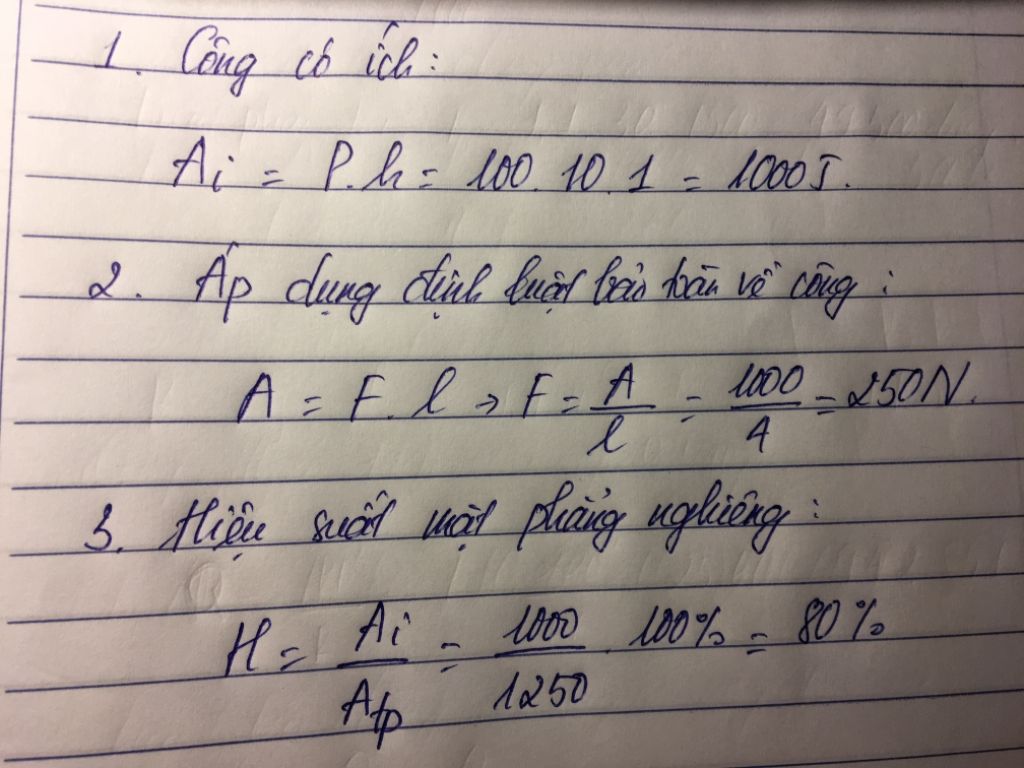 1. Công có ích:
Ai = P.h = 100.10.1 = 1000J.
2. Áp dụng định luật bảo toàn về công:
A = F.l → F = A/l = 1000/4 = 250N.
3. Hiệu suất mặt phẳng nghiêng:
H = Ai/Atp = 1000/1250 . 100% = 80%